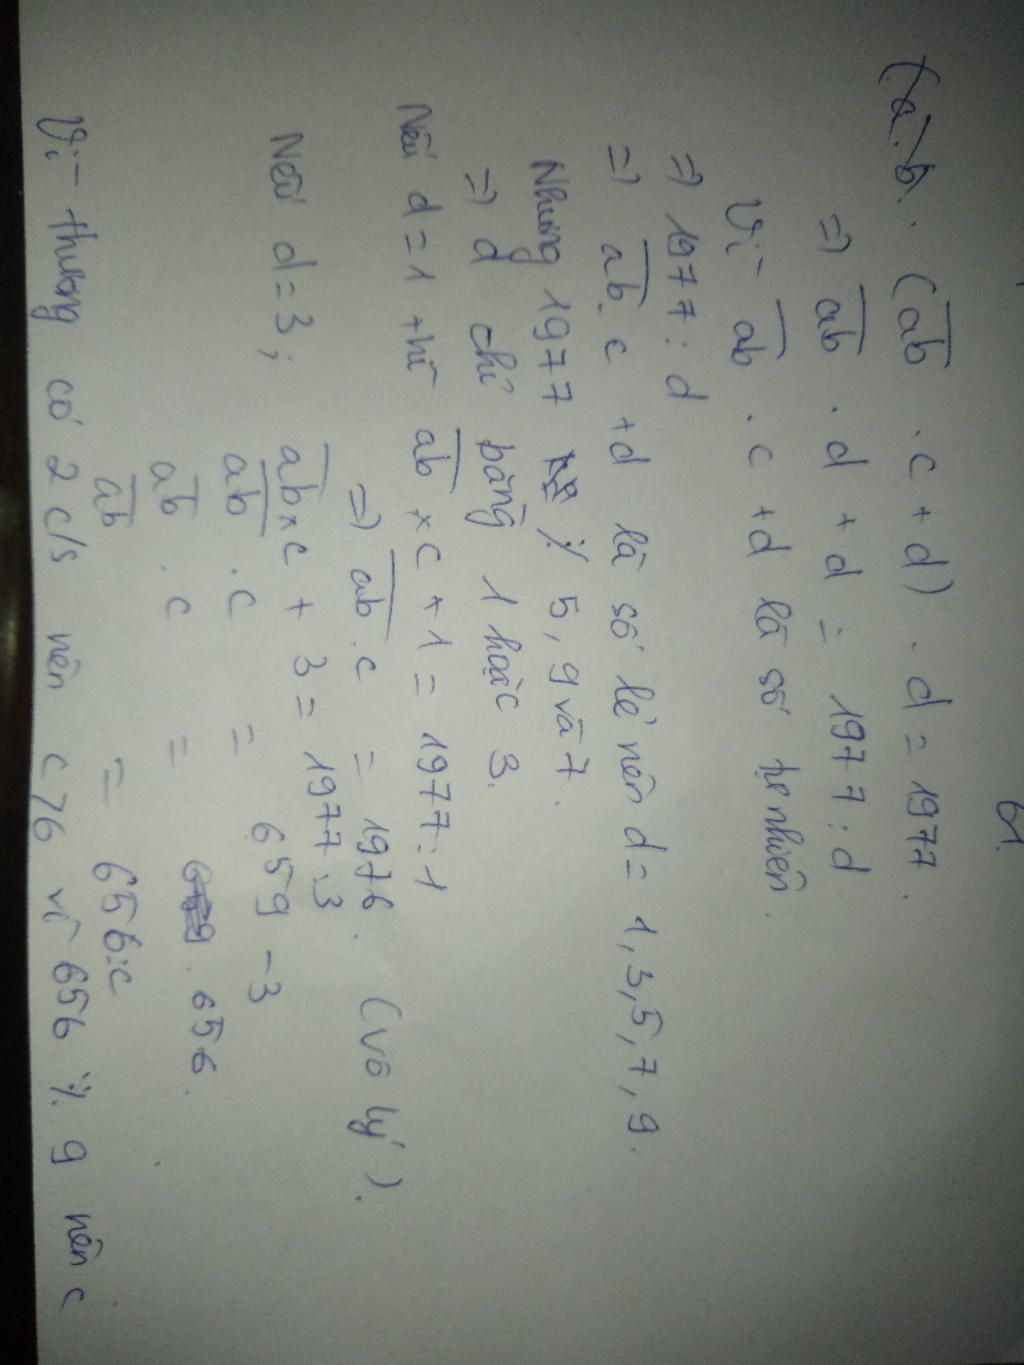 b1.
(a.b. (ab . c + d) . d = 1977.
=) ab . d + d = 1977 : d
Vì ab . c + d là số tự nhiên.
=) 1977 : d
=) ab. c + d là số lẻ nên d = 1, 3, 5, 7, 9.
Nhưng 1977 ⋮̸ 5, 9 và 7.
=) d chỉ bằng 1 hoặc 3.
Nếu d = 1 thì ab × c + 1 = 1977 : 1
=) ab . c = 1976. (vô lý).
Nếu d = 3; ab × c + 3 = 1977 : 3
ab . c = 659 - 3
ab . c = 656.
ab = 656 : c
Vì thương có 2 c/s nên c 76 vì 656 ⋮̸ 9 nên c